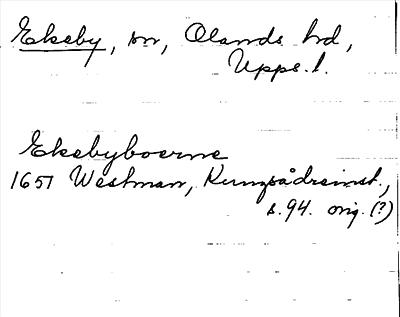 Ekeby, sn, Olands hd,
Upps. l.
Ekebyboerne
1651 Westman, Kunskådreinst.,
s. 94. orig. (?)